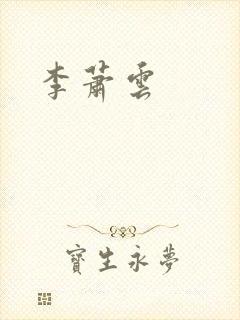 李蕭雲
寶生永夢